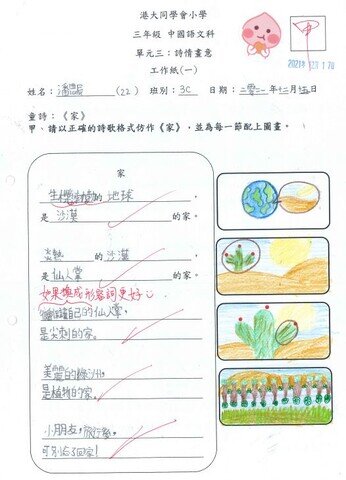 港大同學會小學
三年級 中國語文科
單元三：詩情畫意
工作紙(一)
2021 12月 1 7日
姓名： 潘 (22) 班別： 3C 日期： 二零二一年十二月十五日
童詩：《家》
甲、請以正確的詩歌格式仿作《家》，並為每一節配上圖畫。
家
的 地球，
是 沙漠 的家。
炎熱 的 沙漠，
是 仙人掌 的家。
如果換成形容詞更好
自己的仙人掌，
是尖刺的家。
美麗的綠洲，
是植物的家。
小朋友，旅行後，
可別忘了回家！